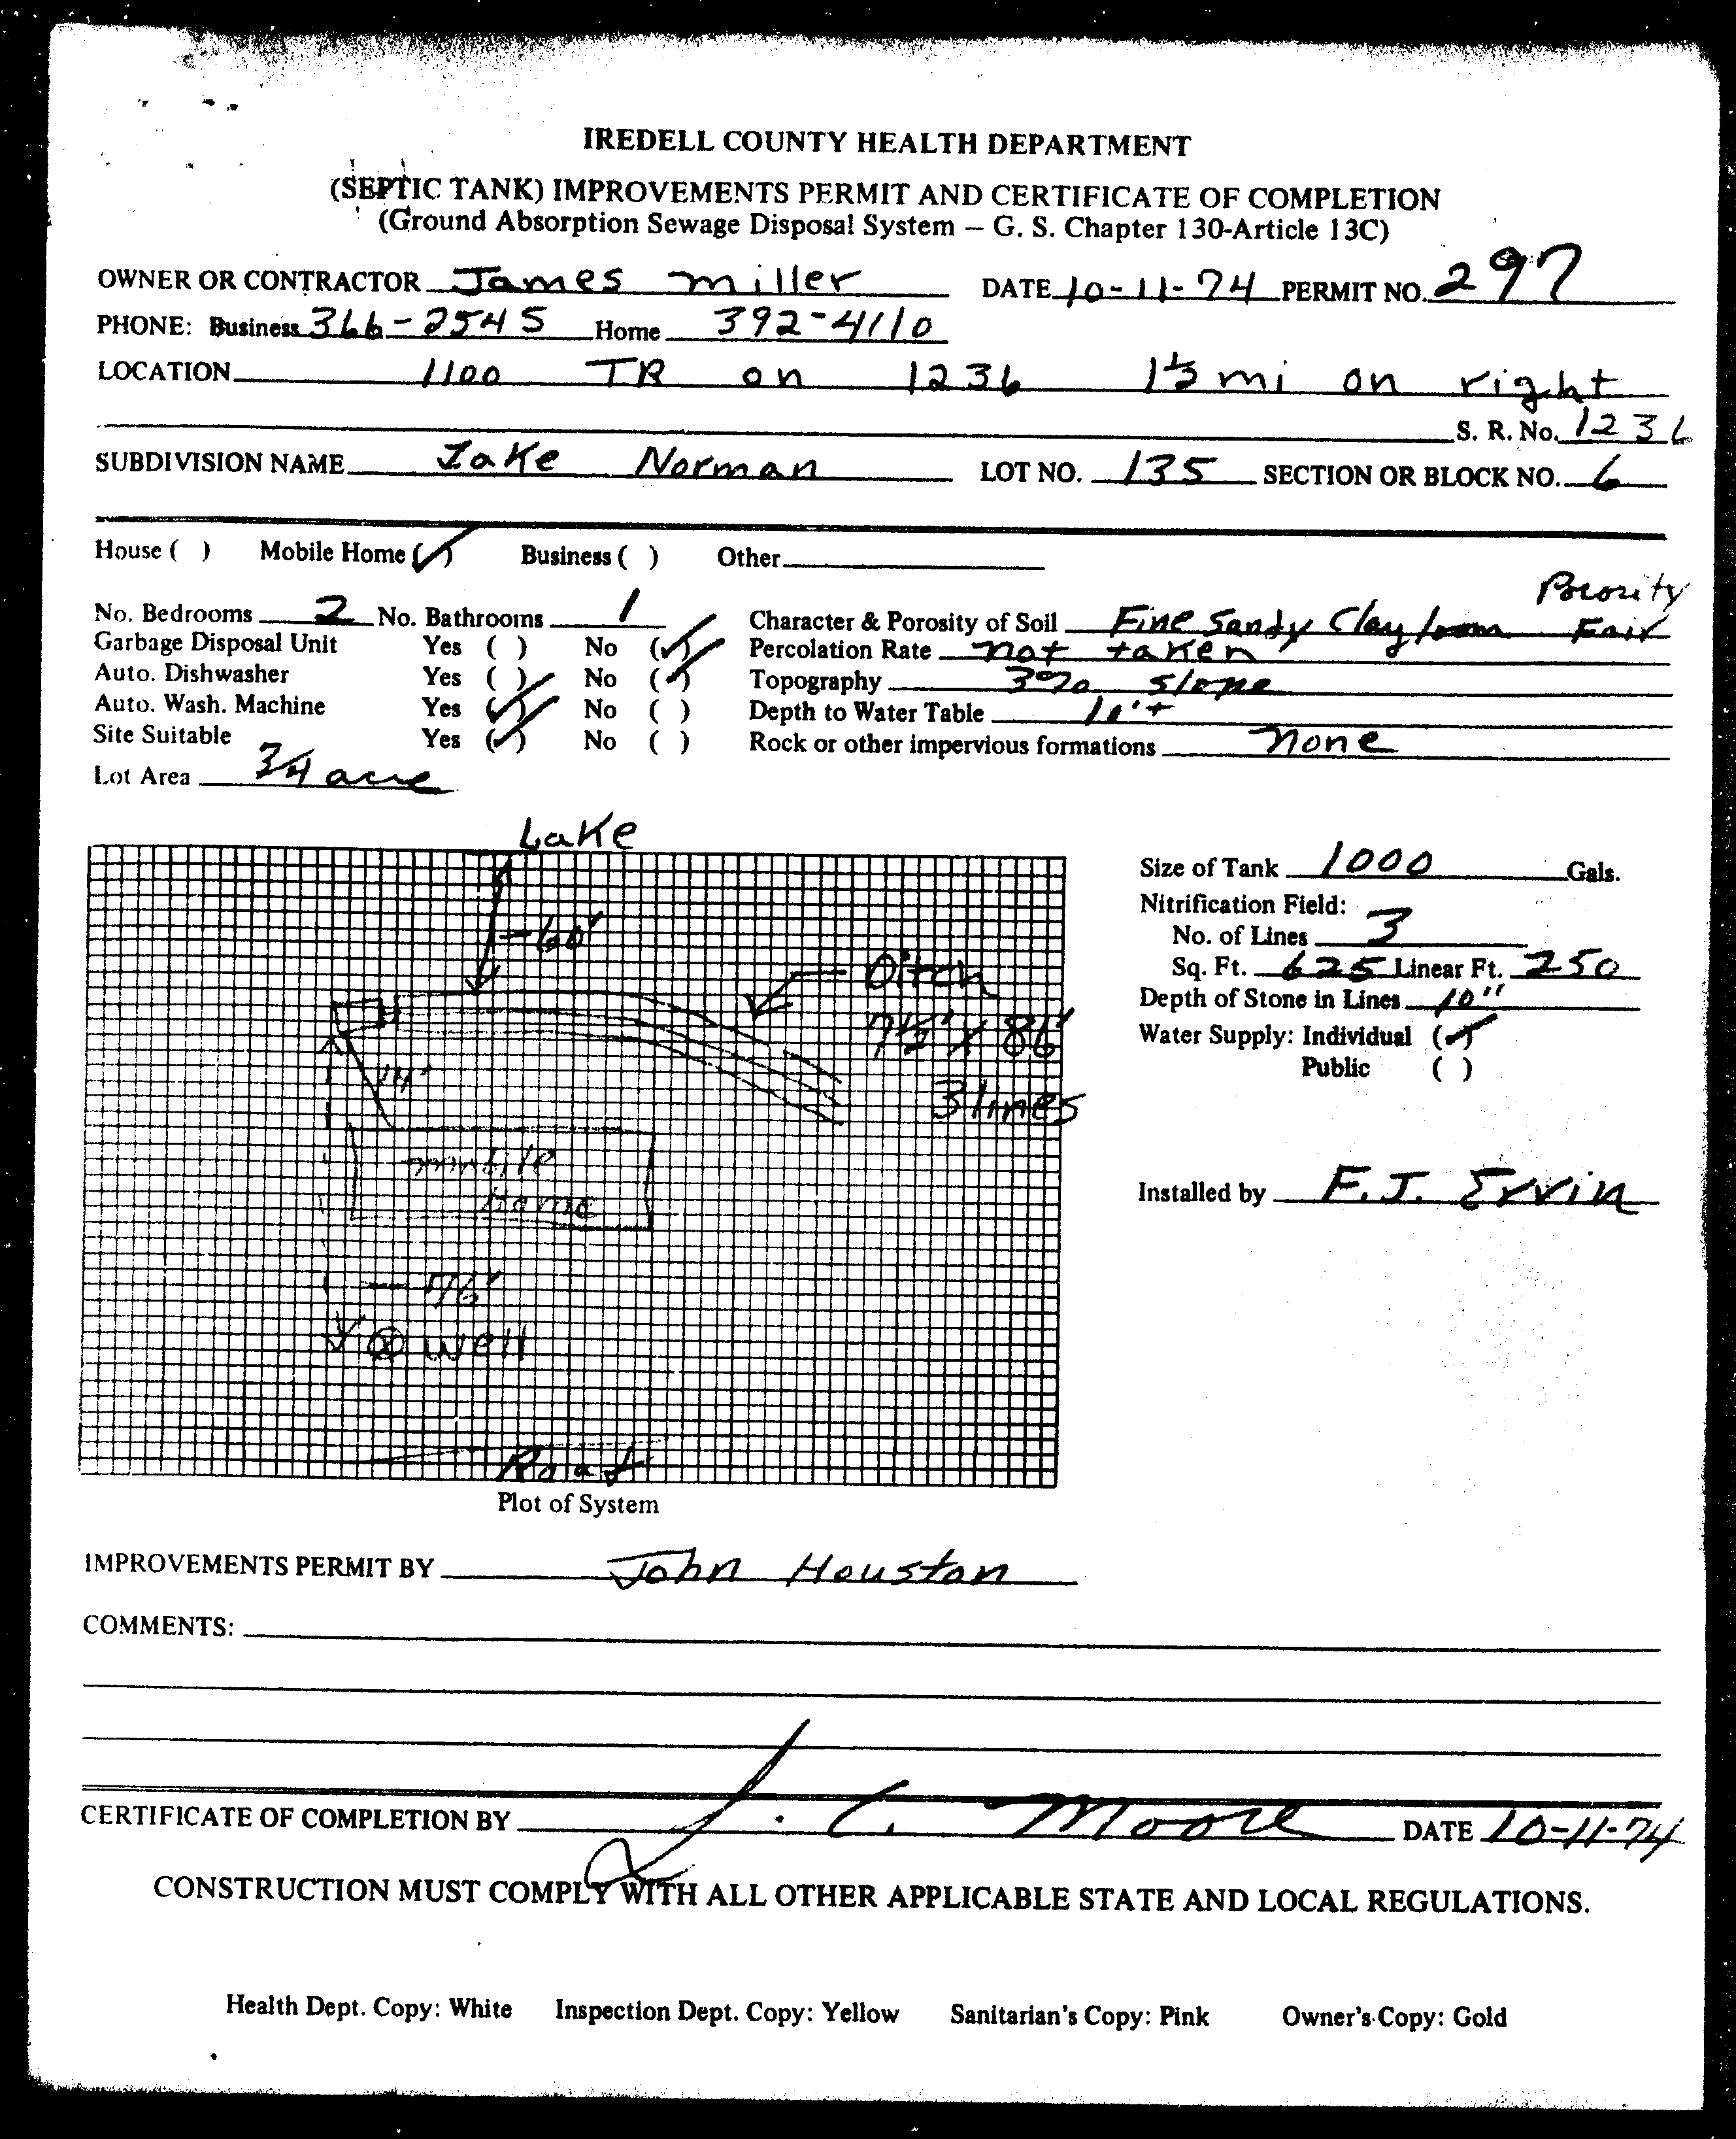 IREDELL COUNTY HEALTH DEPARTMENT
(SEPTIC TANK) IMPROVEMENTS PERMIT AND CERTIFICATE OF COMPLETION
(Ground Absorption Sewage Disposal System – G. S. Chapter 130-Article 13C)
OWNER OR CONTRACTOR James Miller DATE 10-11-74 PERMIT NO. 297
PHONE: Business 366-2545 Home 392-4110
LOCATION 1100 TR on 1236 1 1/2 mi on right
S. R. No. 1236
SUBDIVISION NAME Lake Norman LOT NO. 135 SECTION OR BLOCK NO. 6
House ( ) Mobile Home (✓) Business ( ) Other
Porosity
No. Bedrooms 2 No. Bathrooms 1 Character & Porosity of Soil Fine Sandy Clay loam Fair
Garbage Disposal Unit Yes ( ) No (✓) Percolation Rate not taken
Auto. Dishwasher Yes ( ) No (✓) Topography 3% slope
Auto. Wash. Machine Yes (✓) No ( ) Depth to Water Table 10'+
Site Suitable Yes (✓) No ( ) Rock or other impervious formations none
Lot Area 3/4 acre
Lake
60'
Ditch
7 1/2' x 86'
3 lines
14'
mobile
Home
76'
well
Road
Plot of System
Size of Tank 1000 Gals.
Nitrification Field:
No. of Lines 3
Sq. Ft. 625 Linear Ft. 250
Depth of Stone in Lines 10"
Water Supply: Individual (✓)
Public ( )
Installed by F.J. Ervin
IMPROVEMENTS PERMIT BY John Houston
COMMENTS:
CERTIFICATE OF COMPLETION BY J. C. Moore DATE 10-11-74
CONSTRUCTION MUST COMPLY WITH ALL OTHER APPLICABLE STATE AND LOCAL REGULATIONS.
Health Dept. Copy: White Inspection Dept. Copy: Yellow Sanitarian's Copy: Pink Owner's Copy: Gold